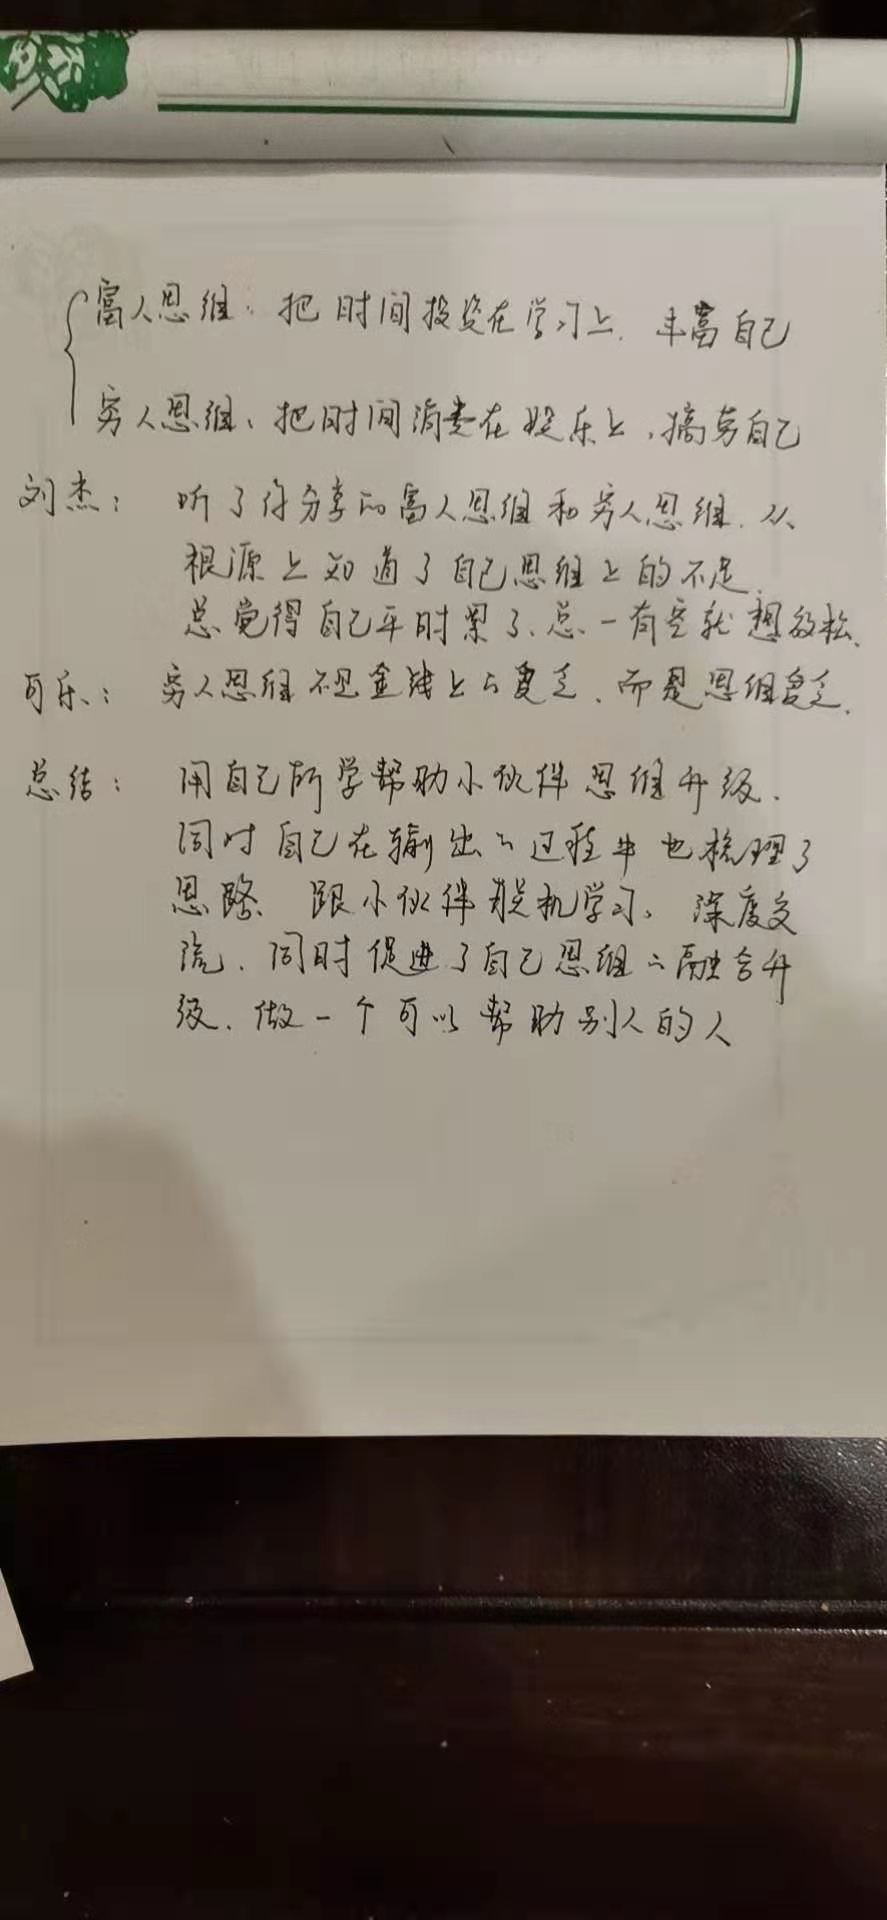 富人思维：把时间投资在学习上.丰富自己
穷人思维、把时间消费在娱乐上，搞穷自己
刘杰：听了你分享的富人思维和穷人思维.从
根源上知道了自己思维上的不足.
总觉得自己平时累了、总一有空就想放松.
可乐：穷人思维不是金钱上的贫乏.而是思维贫乏.
总结：用自己所学帮助小伙伴思维升级.
同时自己在输出的过程中也梳理了
思路.跟小伙伴联机学习。深度交
流.同时促进了自己思维的融合升
级.做一个可以帮助别人的人